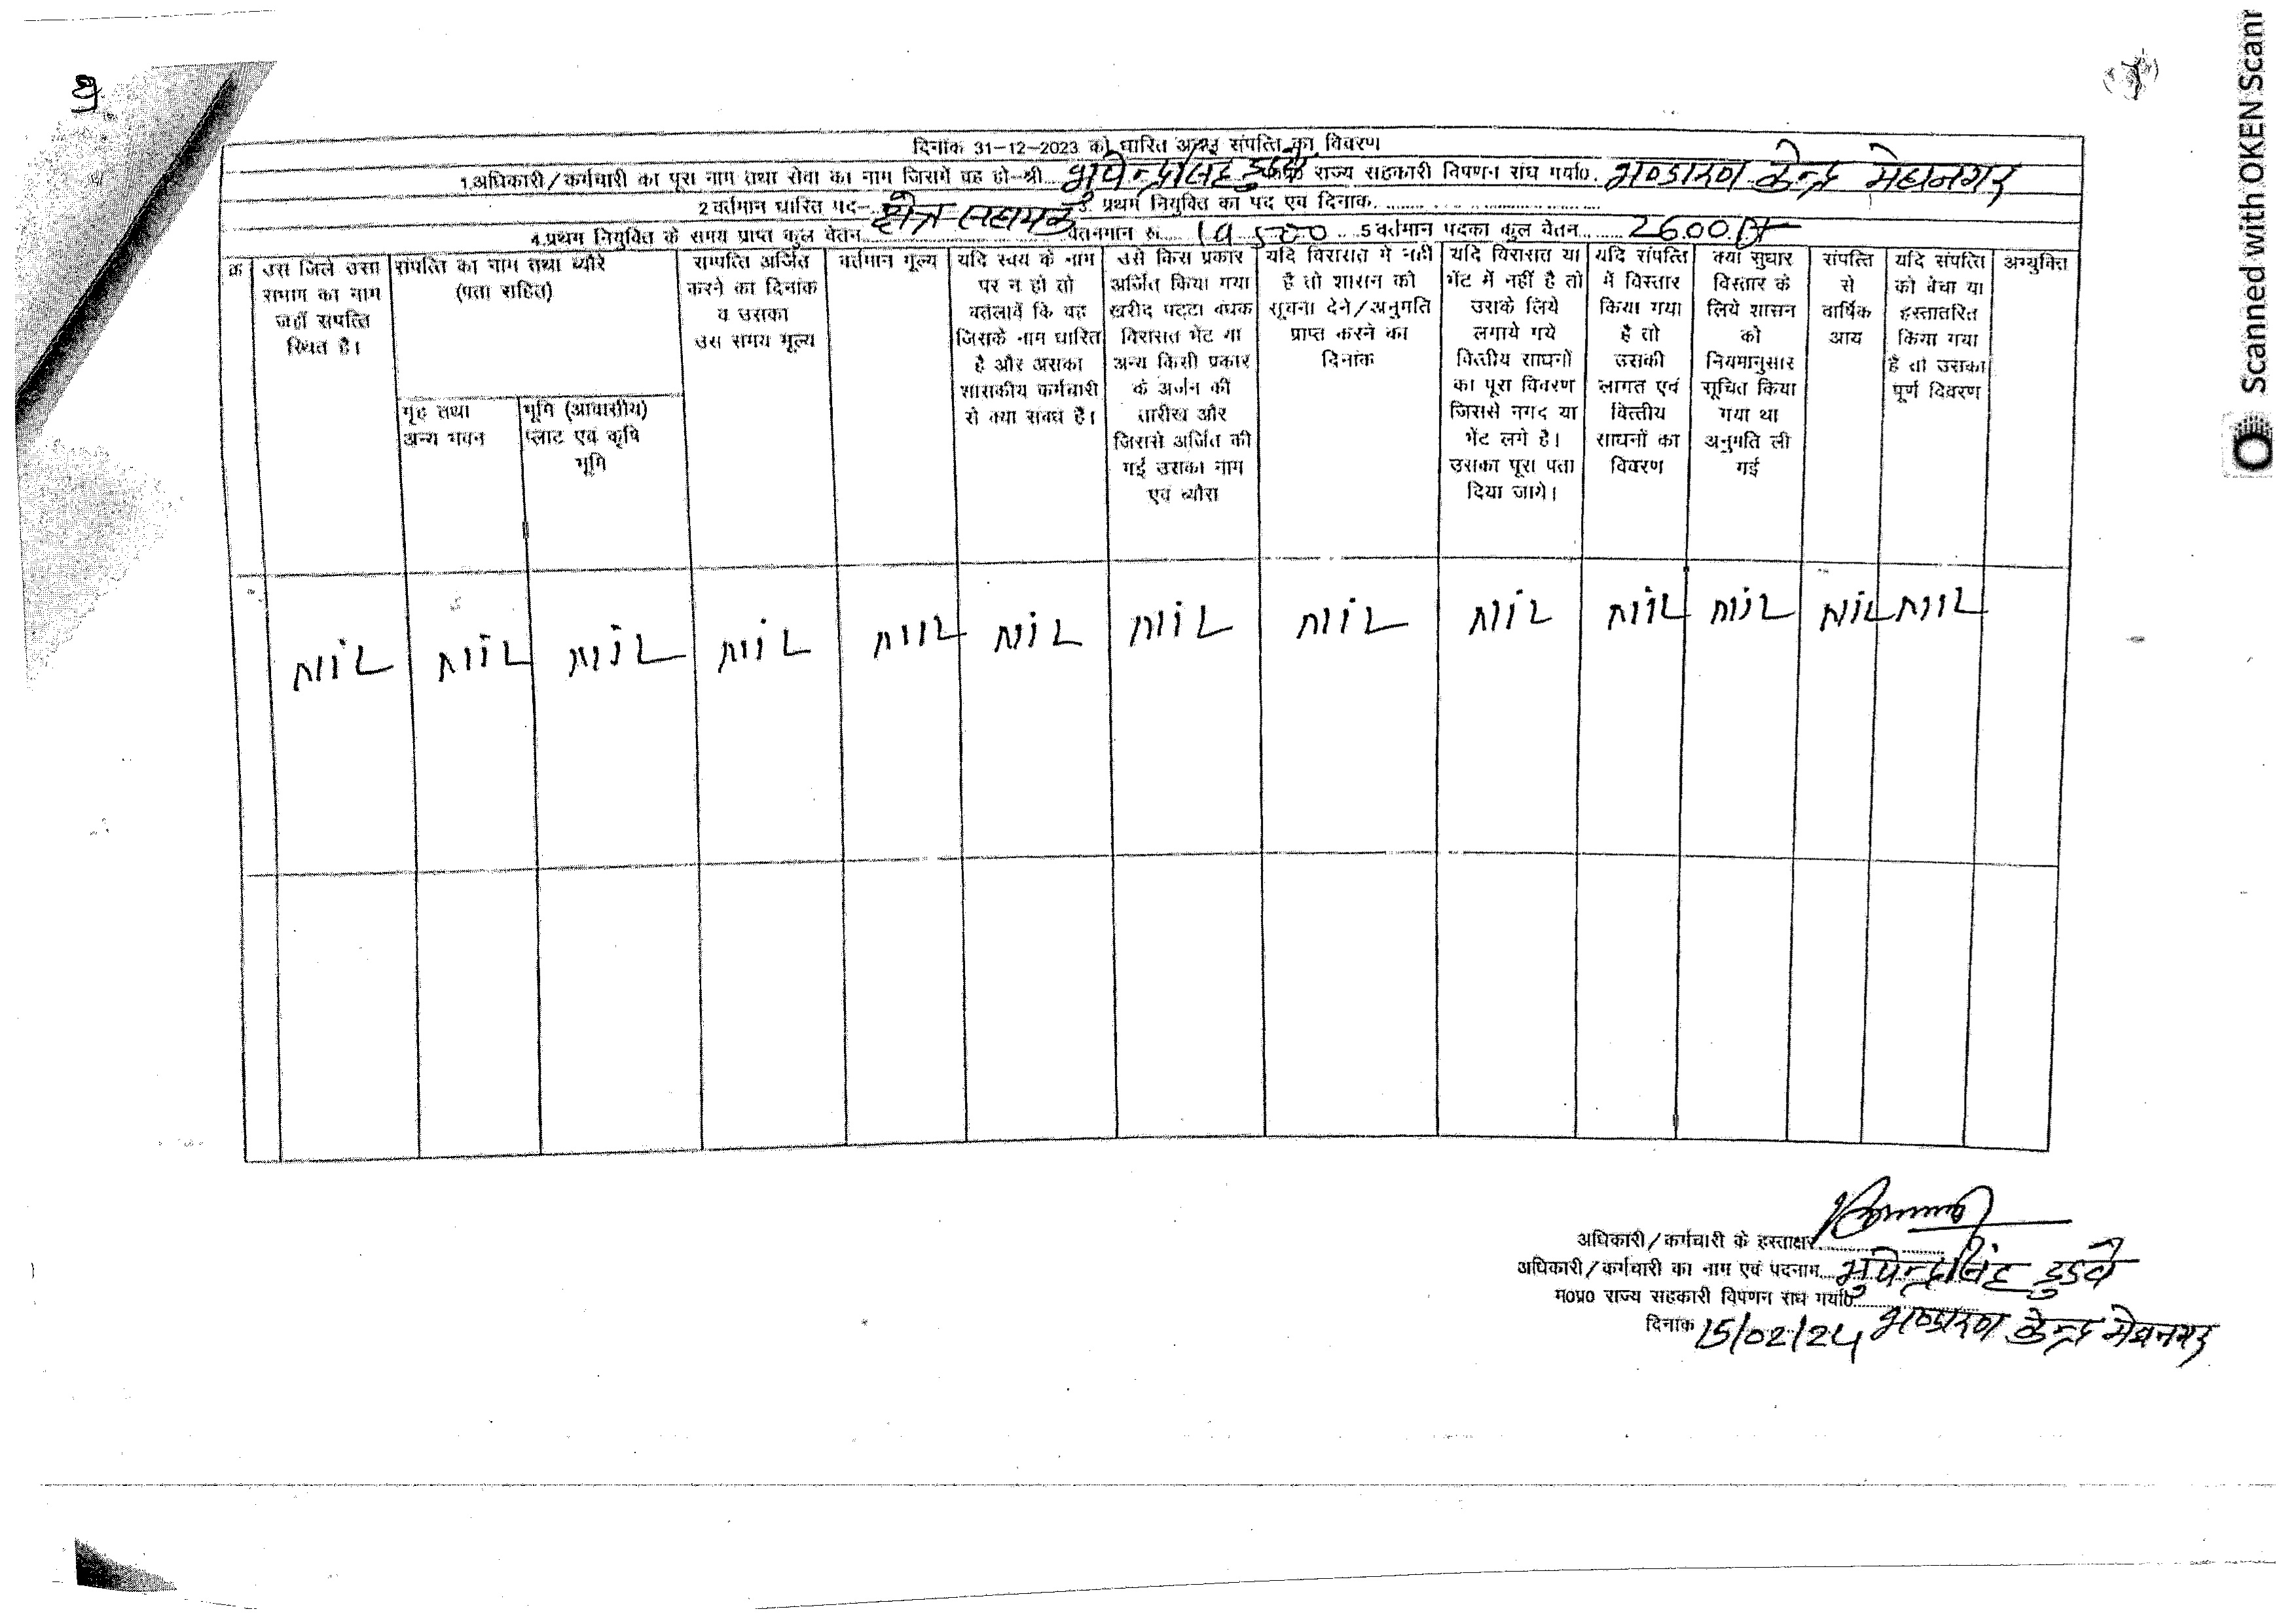 दिनांक 31-12-2023 को धारित अचल संपत्ति का विवरण
1.अधिकारी/कर्मचारी का पूरा नाम तथा सेवा का नाम जिसमें वह हो-श्री भुपेन्द्रसिंह डुडवे राज्य सहकारी विपणन संघ मर्या0. भण्डारण केन्द्र मेघनगर
2 वर्तमान धारित पद- क्षेत्र सहायक 3. प्रथम नियुक्ति का पद एवं दिनांक
4.प्रथम नियुक्ति के समय प्राप्त कुल वेतन वेतनमान रू. 19500 5 वर्तमान पदका कुल वेतन 2600
क्र
उस जिले उसा संभाग का नाम जहाँ संपत्ति स्थित है।
संपत्ति का नाम तथा ब्यौरे (पता सहित)
गृह तथा अन्य भवन
भूमि (आवासीय) प्लाट एवं कृषि भूमि
सम्पत्ति अर्जित करने का दिनांक व उसका उस समय मूल्य
वर्तमान मूल्य
यदि स्वयं के नाम पर न हो तो बतलावें कि वह जिसके नाम धारित है और असका शासकीय कर्मचारी से क्या संबंध है।
उसे किस प्रकार अर्जित किया गया खरीद पट्टा बंधक विरासत भेंट या अन्य किसी प्रकार के अर्जन की तारीख और जिससे अर्जित की गई उसका नाम एवं ब्यौरा
यदि विरासत में नहीं है तो शासन को सूचना देने/अनुमति प्राप्त करने का दिनांक
यदि विरासत या भेंट में नहीं है तो उसके लिये लगाये गये वित्तीय साधनों का पूरा विवरण जिससे नगद या भेंट लगे है। उसका पूरा पता दिया जागे।
यदि संपत्ति में विस्तार किया गया है तो उसकी लागत एवं वित्तीय साधनों का विवरण
क्या सुधार विस्तार के लिये शासन को नियमानुसार सूचित किया गया था अनुमति ली गई
संपत्ति से वार्षिक आय
यदि संपत्ति को बेचा या हस्तातरित किया गया है तो उसका पूर्ण विवरण
अभ्युक्ति
NiL NiL NiL NiL NiL NiL NiL NiL NiL NiL NiL NiL NiL
अधिकारी/कर्मचारी के हस्ताक्षर
अधिकारी/कर्मचारी का नाम एवं पदनाम भुपेन्द्रसिंह डुडवे
म0प्र0 राज्य सहकारी विपणन संघ मर्या0
दिनांक 15/02/24 भण्डारण केन्द्र मेघनगर
Scanned with OKEN Scanr